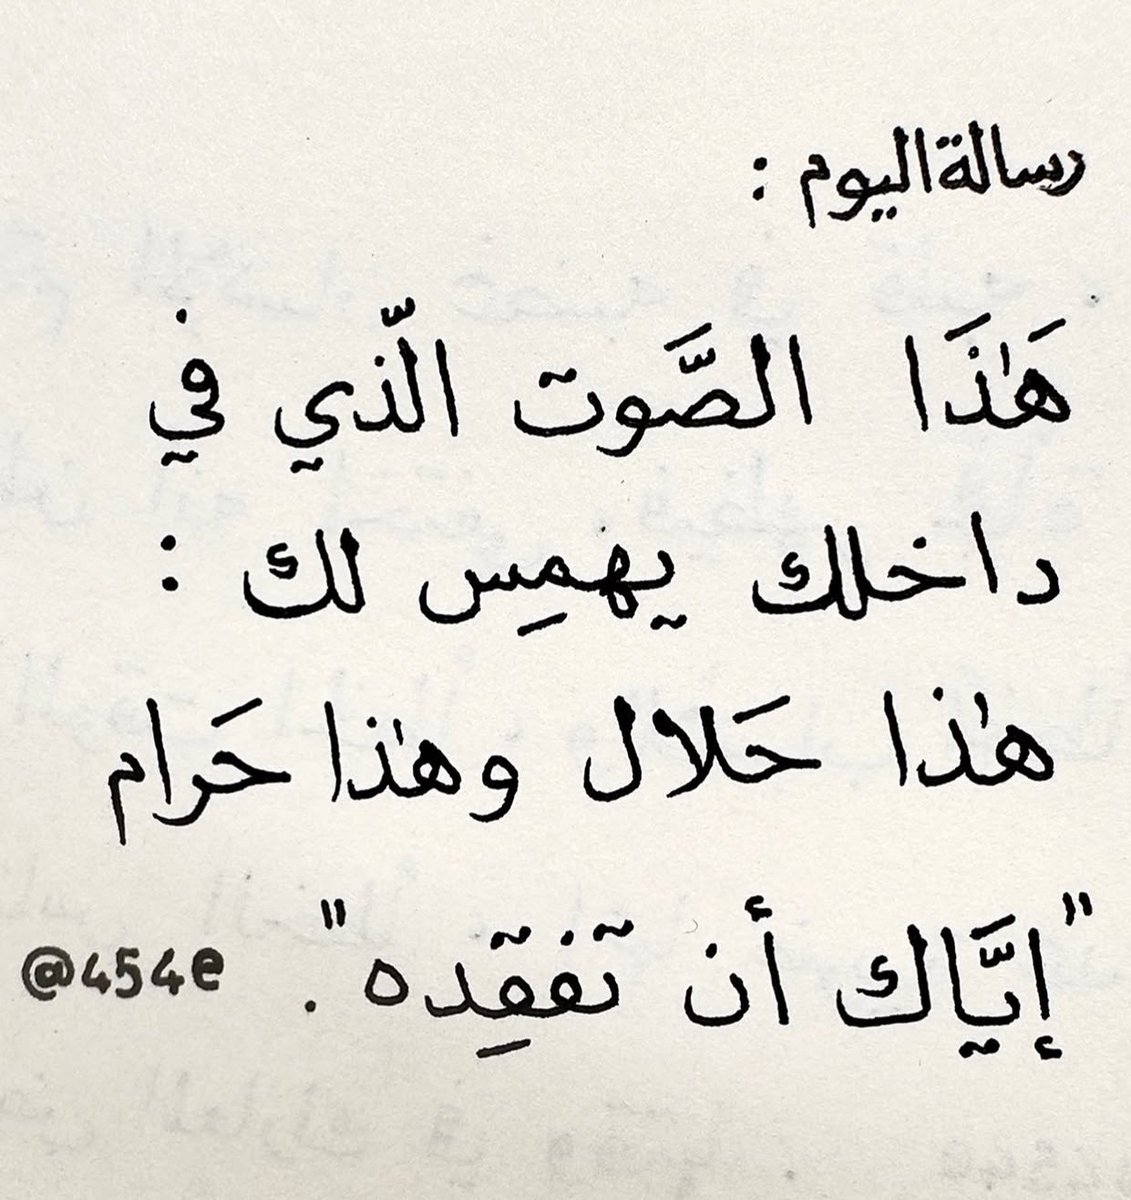 رسالة اليوم :
هَٰذَا الصَّوت الّذي في
داخلك يهمِس لك :
هٰذا حَلال وهٰذا حَرام
"إيَّاك أن تفقِده". @454e